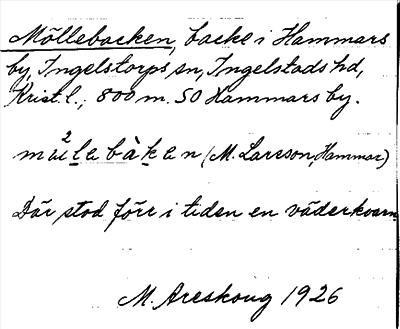 Möllebacken, backe i Hammars
by, Ingelstorps sn, Ingelstads hd,
Krist.l.; 800 m. SO Hammars by.
(M. Larsson, Hammar)
Där stod förr i tiden en väderkvarn
M. Areskoug 1926